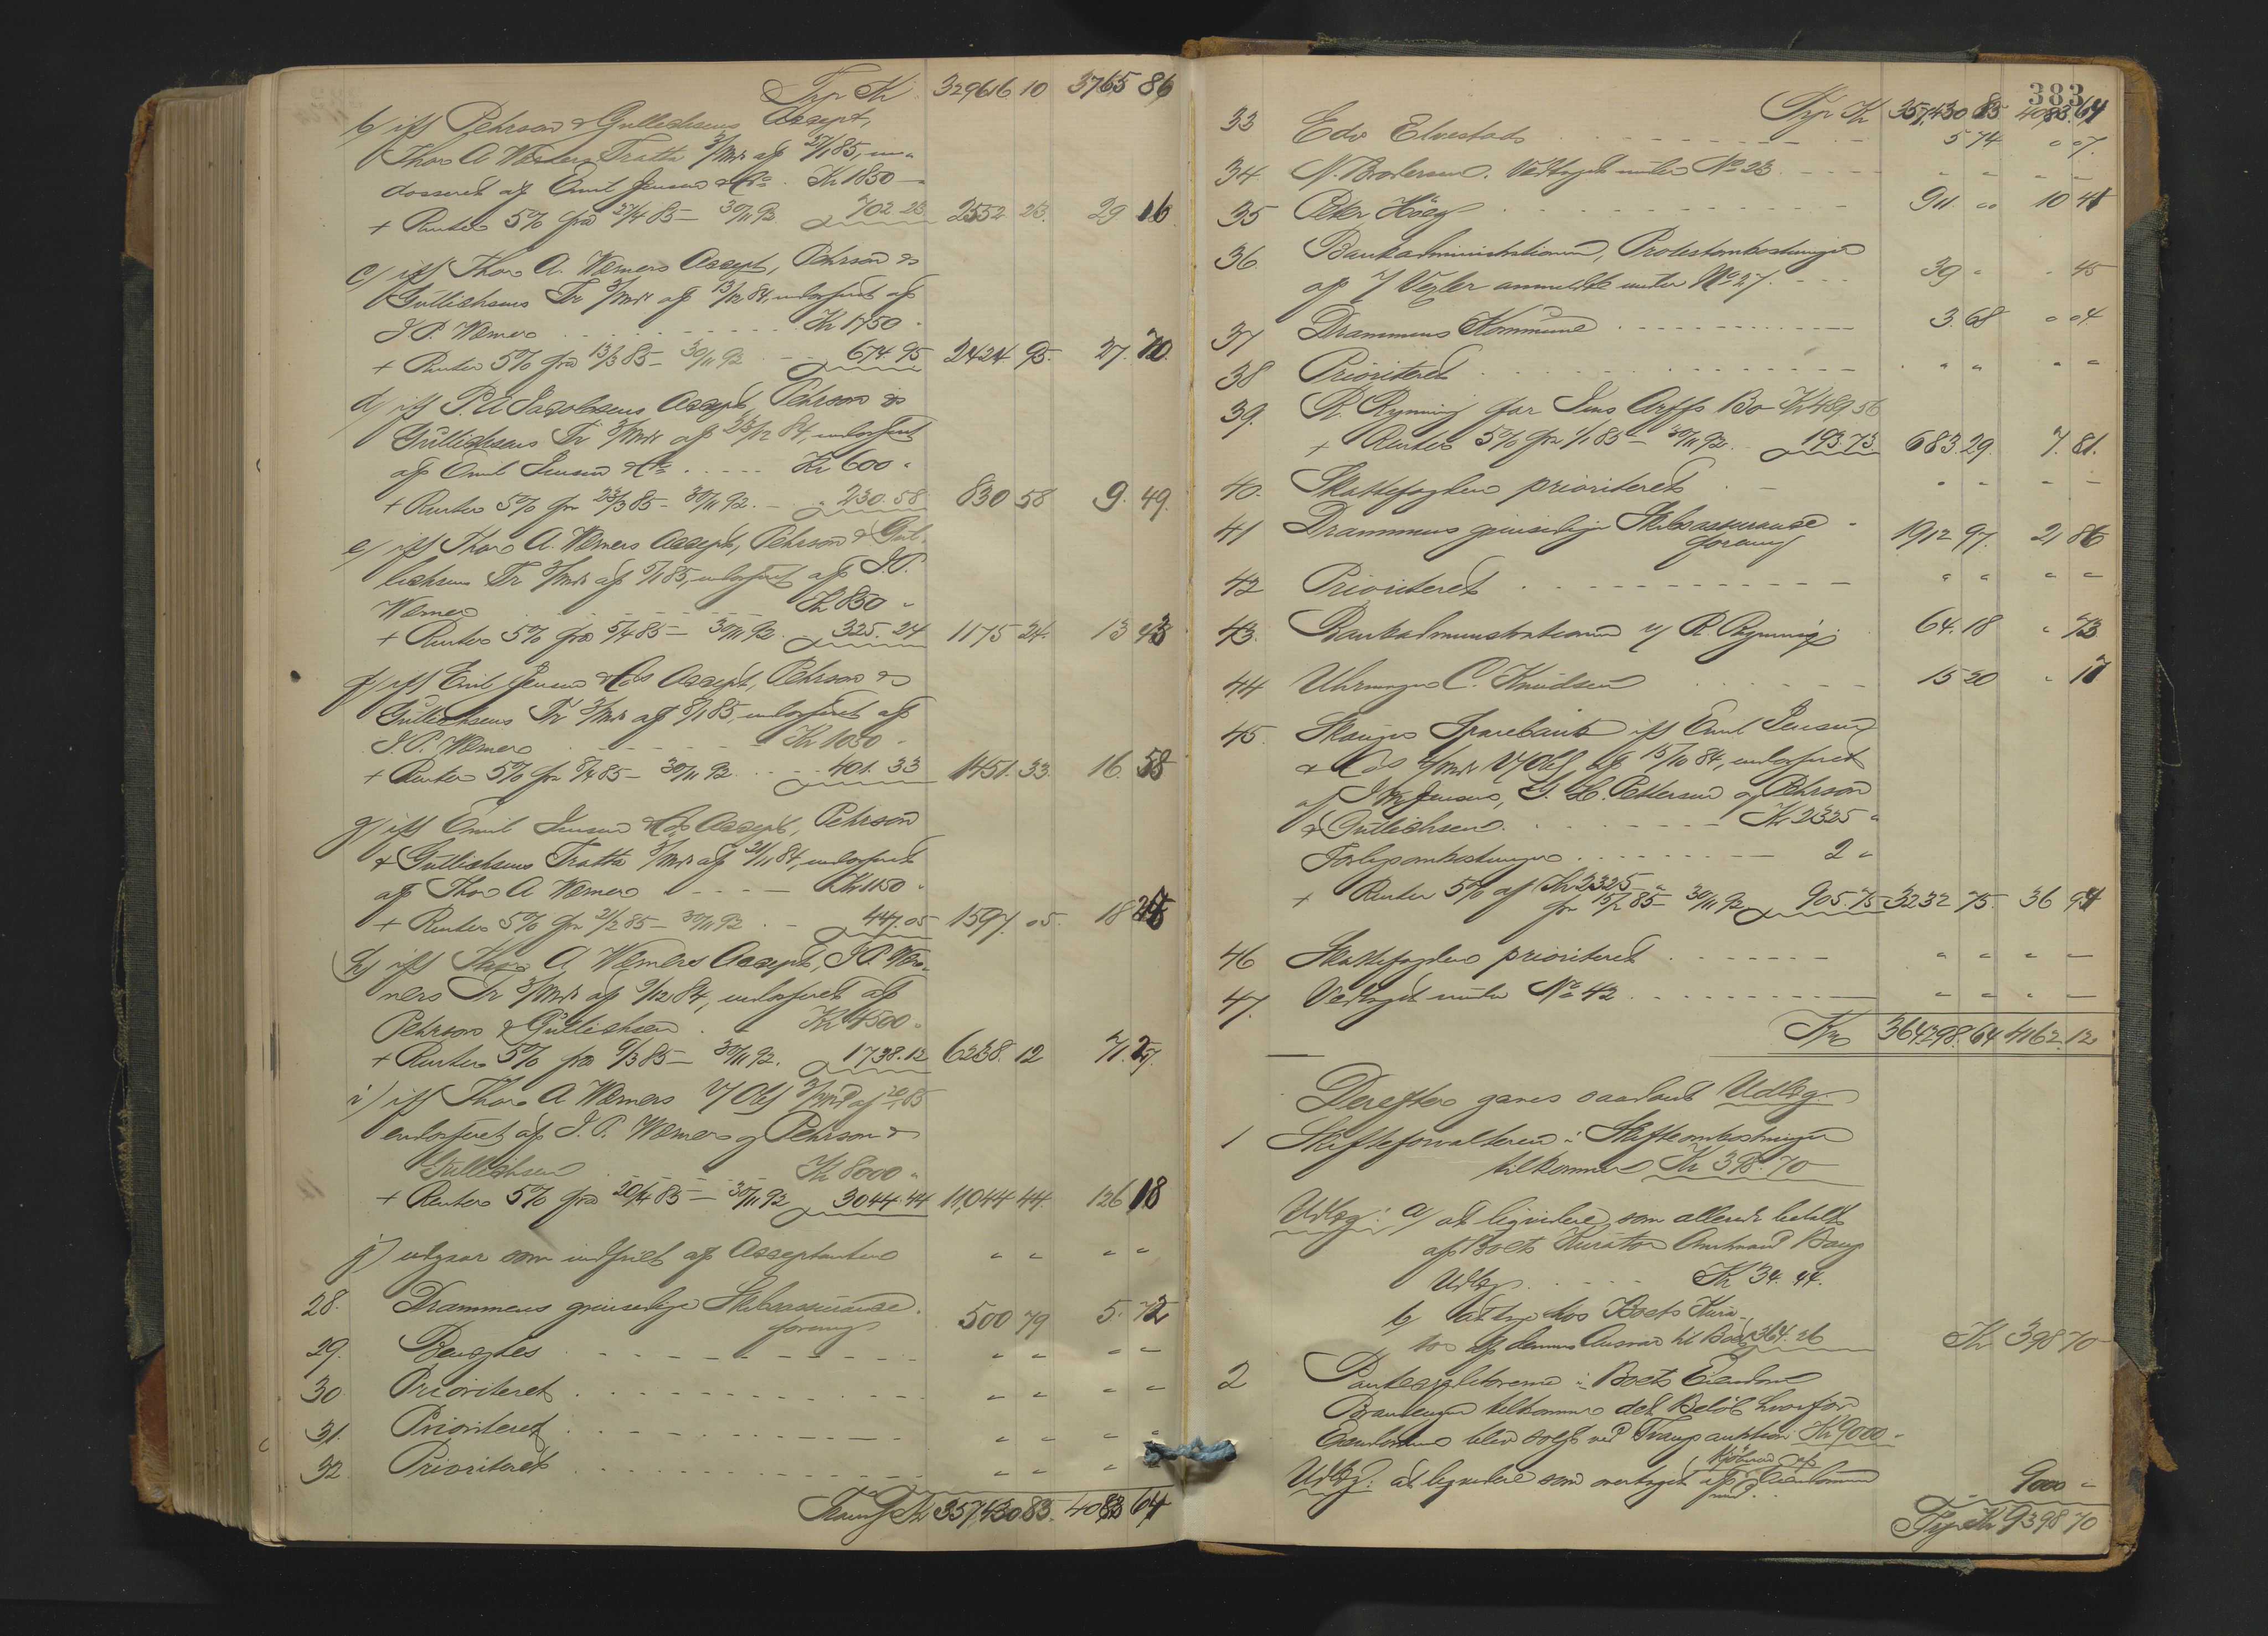 Trp Kr 329616 10 3765 86
b) iflg Pehrson & Gullichsens Accept,
Thor A Wærners Tratta 3/Mdr af 27/1 85, en-
dosseret af Emil Jensen & Co. Kr 1850 "
+ Renter 5% fra 27/4 85 – 30/11 92. 702.23 2552 23. 29 16
c) iflg Thor A. Wærners Accept, Pehrson &
Gullichsens Tr 3/Mdr af 13/12 84, endosseret af
J. P. Wærner Kr 1750 "
+ Renter 5% fra 13/3 85 – 30/11 92 674.95 2424 95. 27. 70.
d) iflg P. A Jacobsens Accept, Pehrson &
Gullichsens Tr 3/Mdr af 23/12 84, endosseret
af Emil Jensen & Co. Kr 600 "
+ Renter 5% fra 23/3 85 – 30/11 92. 230.58 830 58 9. 49.
e) iflg Thor A. Wærners Accept, Pehrson & Gul-
lichsens Tr 3/Mdr af 5/1 85, endosseret af J. P.
Wærner Kr 850 "
+ Renter 5% fra 5/4 85 – 30/11 92. 325.24 1175 24. 13 43
f) iflg Emil Jensen & Co's Accept, Pehrson &
Gullichsens Tr 3/Mdr af 8/1 85, endosseret af
J. P. Wærner Kr 1050 "
+ Renter 5% fra 8/4 85 – 30/11 92 401.33 1451.33. 16. 58
g) iflg Emil Jensen & Co's Accept, Pehrson
& Gullichsens Tratta 3/Mdr af 21/11 84, endosseret
af Thor A Wærner Kr 1150 "
+ Renter 5% fra 21/2 85 – 30/11 92 447.05 1597. 05. 18
h) iflg Thor A Wærners Accept, J. P. Wær-
ners Tr 3/Mdr af 9/12 84, endosseret af
Pehrson & Gullichsen Kr 4500 "
+ Renter 5% fra 9/3 85 – 30/11 92. 1738.12 6238. 12 71. 27.
i) iflg Thor A Wærners V/Obl 3/Md af 20/1 85
endosseret af J. P. Wærner og Pehrson &
Gullichsen Kr 8000 "
+ Renter 5% fra 20/4 85 – 30/11 92 3044.44 11,044 44. 126 18
j) udgaar som indfriet af Acceptanten " " " "
28. Drammens gjensidige Skibsassurance-
forening 500 79 5. 72
29. Benægtes " " " "
30 Prioriteret " " " "
31. Prioriteret " " " "
32 Prioriteret " " " "
Transp Kr 357,430 83. 4083 64
383
Trp Kr 357,430 83 4083. 64
33 Edv Elvestad 5 74 " 07.
34 N. Brodersen. Vedtaget under No 23 " " " "
35 Peter Höeg 911. " 10 41
36 Bankadministrationen, Protestomkostninger
af 7 Vexler anmeldt under No 27. 39 " " 45
37 Drammens Kommune 3.68 " 04
38 Prioriteret " " " "
39. R. Rynning for Jens Arffs Bo Kr 489 56
+ Renter 5% fra 1/1 85 – 30/11 92 193.73 683 29. 7. 81.
40. Skattefogden prioriteret " " " "
41 Drammens gjensidige Skibsassurance-
forening 1912 97. 21 86
42 Prioriteret " " " "
43. Bankadministrationen v/ R. Rynning 64.18 " 73
44 Uhrmager C. Knudsen 15 20 " 17
45. Skouger Sparebank iflg Emil Jensen
& Co's 4/Mdr V/Obl af 15/10 84, endosseret
af J Jensen, G. H. Pettersen og Pehrson
& Gullichsen Kr 2325 "
Forligsomkostninger 2 "
+ Renter 5% af Kr 2325 "
fra 15/2 85 – 30/11 92 905.75 3232 75. 36 94
46 Skattefogden prioriteret " " " "
47. Vedtaget under No 42 " " " "
Kr 364298.64 4162.12
Derefter gaves saadant Udlæg.
1 Skifteforvalteren i Skifteomkostninger
tilkommer Kr 398.70
Udlæg: a/ at liqvidere som allerede betalt
af Boets Kurator Amtmand Bang
Udlæg Kr 34.44.
b/ Udlæg hos Boets Kura-
tor af dennes Ansvar til Boet 364.26 Kr 398 70
2 Pantecreditorerne i Boets Eiendom
Brantenyer tilkommer det Beløb hvorfor
Eiendommen blev solgt ved Tvangsauktion Kr 9000 "
Udlæg: at liqvidere som overtaget af Kjøberen af
Eiendommen 9000 "
Trp Kr 9398 70